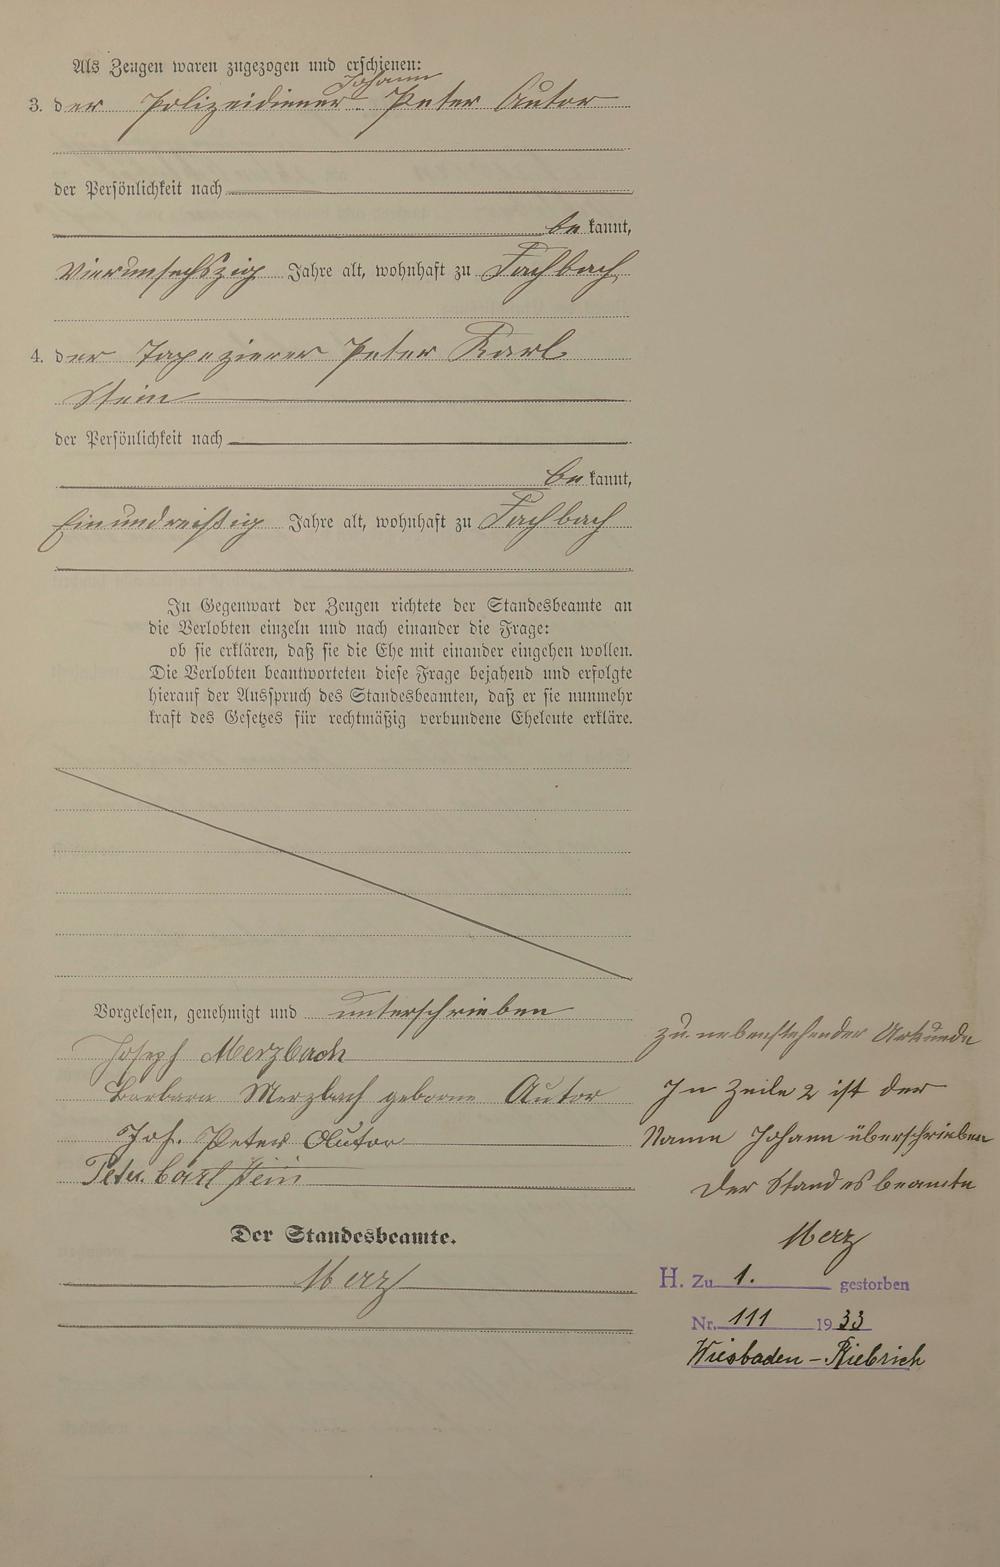 Als Zeugen waren zugezogen und erschienen:
Johann
3. der Polizeidiener Peter Autor
der Persönlichkeit nach
be kannt,
vierunsechszig Jahre alt, wohnhaft zu Fachbach
4. der Tapezierer Peter Karl
Stein
der Persönlichkeit nach
be kannt,
einundreißig Jahre alt, wohnhaft zu Fachbach
In Gegenwart der Zeugen richtete der Standesbeamte an
die Verlobten einzeln und nach einander die Frage:
ob sie erklären, daß sie die Ehe mit einander eingehen wollen.
Die Verlobten beantworteten diese Frage bejahend und erfolgte
hierauf der Ausspruch des Standesbeamten, daß er sie nunmehr
kraft des Gesetzes für rechtmäßig verbundene Eheleute erkläre.
Vorgelesen, genehmigt und unterschrieben
Joseph Merzbach
Barbara Merzbach geborne Autor
Joh. Peter Autor
Peter Carl Stein
Der Standesbeamte.
Merz
zu nebenstehender Urkunde
In Zeile 2 ist der
Name Johann überschrieben
Der Standesbeamte
Merz
H. Zu 1. gestorben
Nr. 111 1933
Wiesbaden-Biebrich